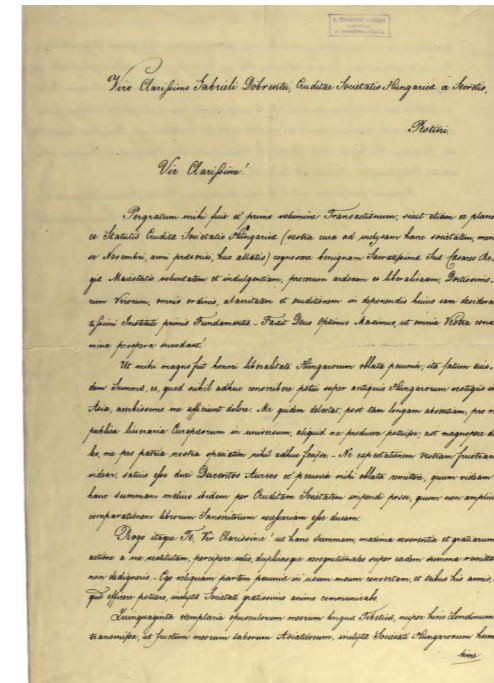 Viro Clarissimo Gabrieli Döbrentei, Eruditae Societatis Hungaricae à Secretis,
Pestini.
Vir Clarissime!
Pergratum mihi fuit è primo volumine Transactionum, sicut etiam ex plano
et Statutis Eruditae Societatis Hungaricae (vestra cura ad inclytam hanc societatem, men-
se Novembri, anni praeteriti, huc allatis) cognoscere benignam Sacratissimae Suae Caesareo Re-
giae Maiestatis voluntatem et indulgentiam, procerum ardorem et liberalitatem, Doctissimo-
rum Virorum, omnis ordinis, alacritatem et eruditionem in deponendis huius tam desidera-
tissimi Instituti primis Fundamentis. - Faxit Deus Optimus Maximus, ut omnia Vestra cona-
mina prospere succedant!
Ut mihi magno fuit honori liberalitate Hungarorum oblata pecunia; ita fatum eius-
dem Summae, et, quod nihil adhuc conscribere potui super antiquis Hungarorum vestigiis in
Asia, acerbissimo me afficiunt dolore. Me quidem delectat, post tam longam absentiam, pro re
publica literaria Europaeorum in universum, aliquid me producere potuisse, ast magnopere do-
leo, me pro patria nostra speciatim nihil adhuc fecisse. - Ne expectationem vestram frustrare
videar, satius esse duxi Ducentos Aureos è pecunia mihi oblata remittere, quum videam
hanc summam melius ibidem per Eruditam Societatem impendi posse, quum non amplius
comparationem librorum Sanscritorum necessariam esse ducam.
Rogo itaque Te, Vir Clarissime! ut hanc Summam, maxima reverentia et gratiarum
actione a me restitutam, percipere velis, duplicesque recognitionales super eadem summa remittere
non dedigneris. - Ego reliquam partem pecuniae in usum meum convertam, et tribus his annis,
quid efficere potuero, inclytae Societati gratissimo animo communicabo.
Quinquaginta exemplaria opusculorum meorum linguae Tibeticae, nuper hinc Londinum
transmissa, ut fructum meorum laborum Asiaticorum, inclytae Societati Hungarorum humil-
lime